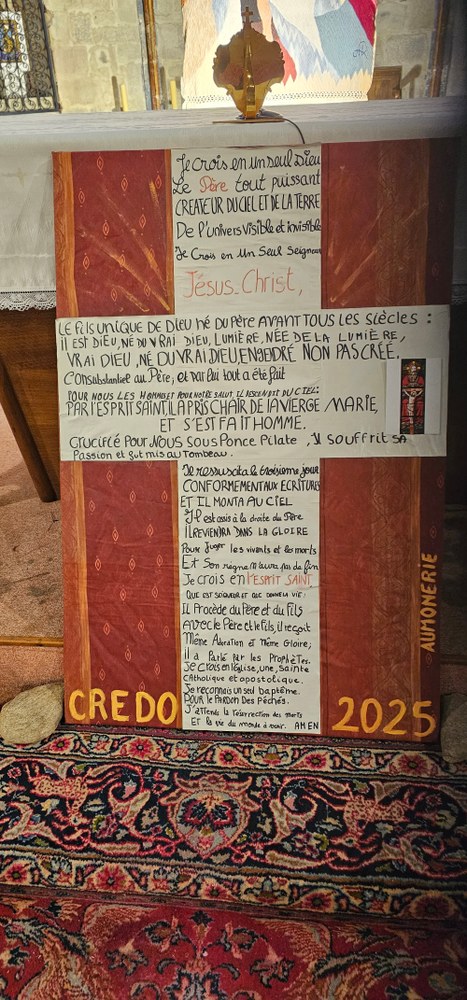 Je crois en un seul Dieu
Le Père tout puissant
CREATEUR DU CIEL ET DE LA TERRE
De l'univers visible et invisible
Je Crois en Un Seul Seigneur
Jésus-Christ,
LE FILS UNIQUE DE DIEU Né DU PèRE AVANT TOUS LES SIèCLES :
IL EST DIEU, Né DU VRAI DIEU, LUMIèRE, NÉE DE LA LUMIÈRE,
VRAI DIEU, NÉ DU VRAI DIEU, ENGENDRÉ NON PAS CRÉÉ.
Consubstantiel au Père, et par lui tout a été fait
POUR NOUS LES HOMMES ET POUR NOTRE SALUT, IL DESCENDIT DU CIEL:
PAR l'ESPRIT SAINT, IL A PRIS CHAIR DE LA VIERGE MARIE,
ET S'EST FAIT HOMME.
Crucifié POUR NOUS SOUS PONCE Pilate, Il SOUFFRIT SA
Passion et fut mis au Tombeau.
Il ressuscita le troisième jour
CONFORMEMENT AUX ECRITURES
ET IL MONTA AU CIEL
Il est assis à la droite du Père
IL REVIENDRA DANS LA GLOIRE
Pour juger les vivants et les morts
Et Son règne n'aura pas de fin
Je crois en l'ESPRIT SAINT
QUI EST SEIGNEUR ET QUI DONNE LA VIE:
Il Procède du Père et du Fils
AVEC le Père et le fils, il reçoit
Même Adoration et Même Gloire;
il a Parlé Par les Prophètes.
Je crois en l'église, une, Sainte
Catholique et apostolique.
Je reconnais un seul baptême
POUR le PARDON Des Péchés.
J'attends la résurrection des morts
Et la vie du monde à venir. AMEN
CREDO 2025
AUMONERIE